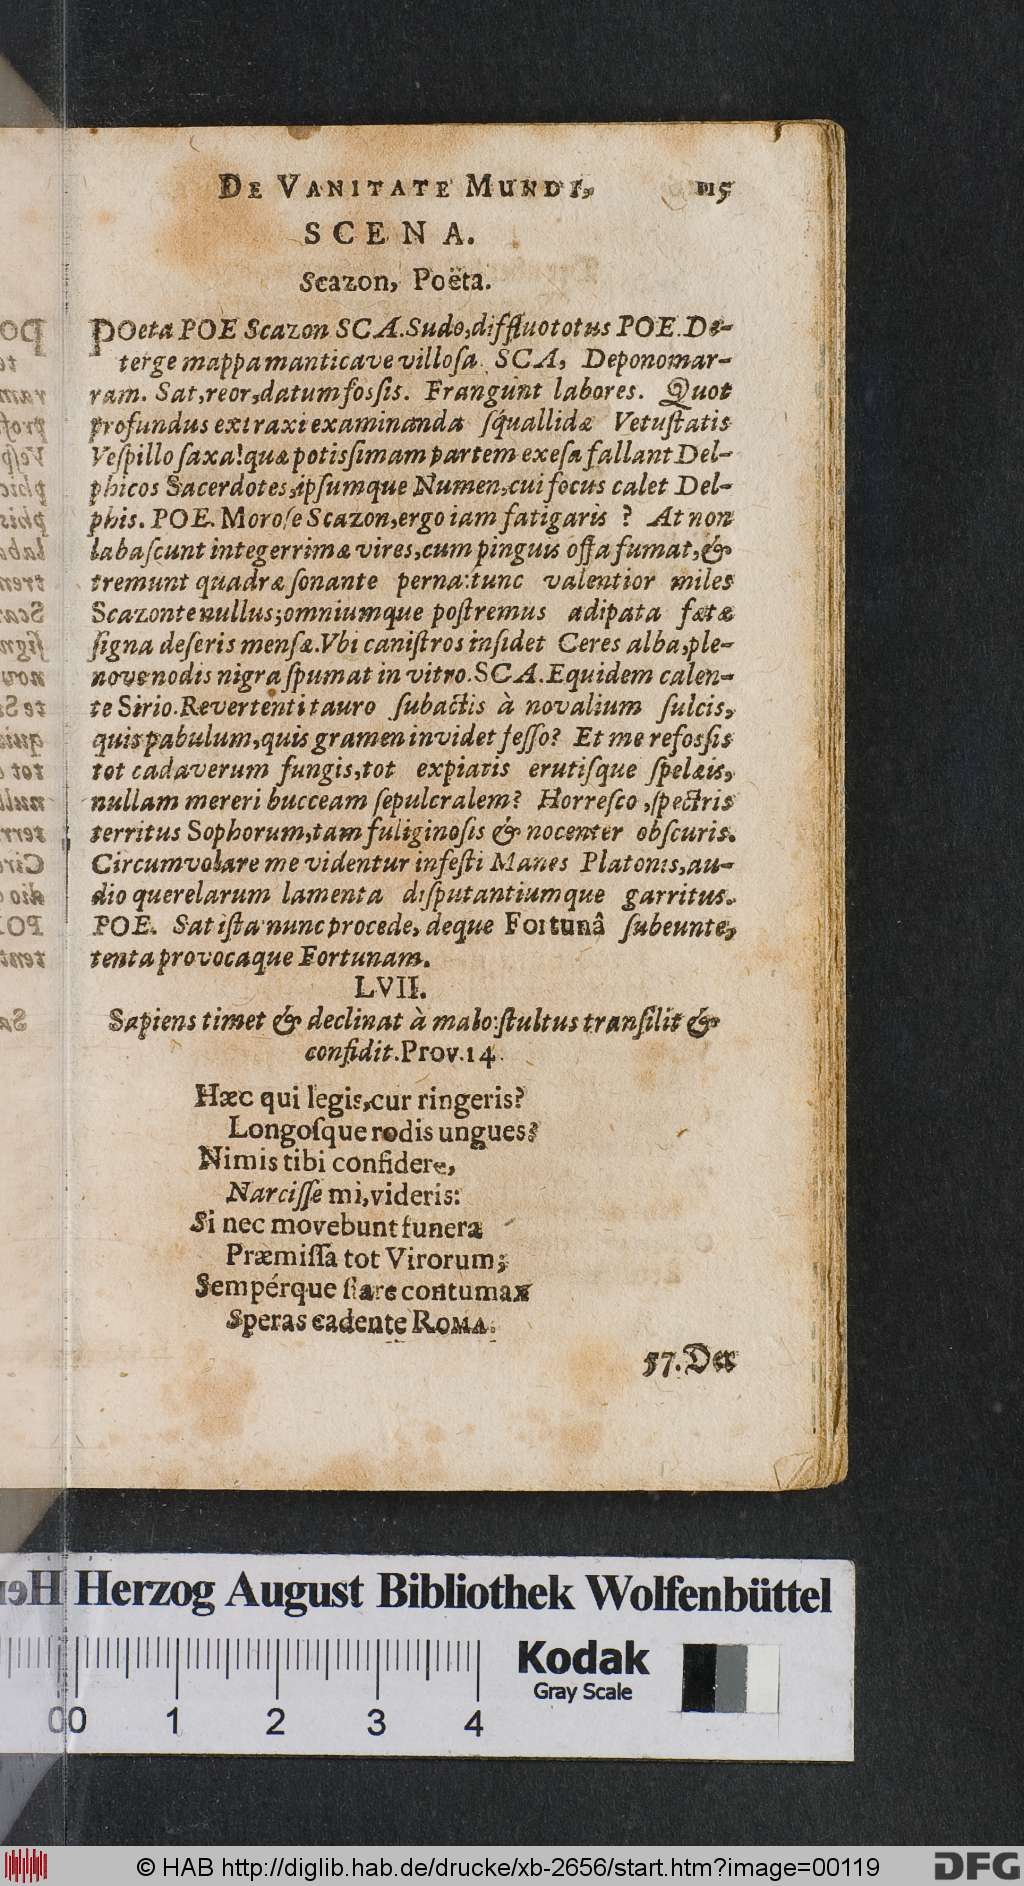 DE VANITATE MUNDI, 115
SCENA.
Scazon, Poëta.
POeta POE Scazon SCA. Sudo, diffluo totus POE. De-
terge mappa manticave villoſa. SCA, Depono mar-
ram. Sat, reor, datum foſſis. Frangunt labores. Quot
profundus extraxi examinanda ſquallidæ Vetuſtatis
Veſpillo ſaxa! quæ potisſimam partem exeſa fallant Del-
phicos Sacerdotes, ipſumque Numen, cui focus calet Del-
phis. POE. Moroſe Scazon, ergo iam fatigaris ? At non
labaſcunt integerrimæ vires, cum pinguis offa fumat, &
tremunt quadræ ſonante perna: tunc valentior miles
Scazonte nullus; omniumque poſtremus adipata fætæ
ſigna deſeris menſæ. Vbi caniſtros inſidet Ceres alba, ple-
nove nodis nigra ſpumat in vitro. SCA. Equidem calen-
te Sirio. Revertenti tauro ſubactis à novalium ſulcis,
quis pabulum, quis gramen invidet feſſo? Et me refosſis
tot cadaverum fungis, tot expiatis erutiſque ſpelæis,
nullam mereri bucceam ſepulcralem? Horreſco, ſpectris
territus Sophorum, tam fuliginoſis & nocenter obſcuris.
Circumvolare me videntur infeſti Manes Platonis, au-
dio querelarum lamenta diſputantiumque garritus.
POE. Sat iſta nunc procede, deque Fortunâ ſubeunte,
tenta provocaque Fortunam.
LVII.
Sapiens timet & declinat à malo: ſtultus tranſilit &
confidit. Prov. 14.
Hæc qui legis, cur ringeris?
Longoſque rodis ungues?
Nimis tibi confidere,
Narciſſe mi, videris:
Si nec movebunt funera
Præmiſſa tot Virorum;
Sempérque ſtare contumax
Speras cadente ROMA.
57. Der
Herzog August Bibliothek Wolfenbüttel
Kodak
Gray Scale
0 1 2 3 4
© HAB http://diglib.hab.de/drucke/xb-2656/start.htm?image=00119
DFG